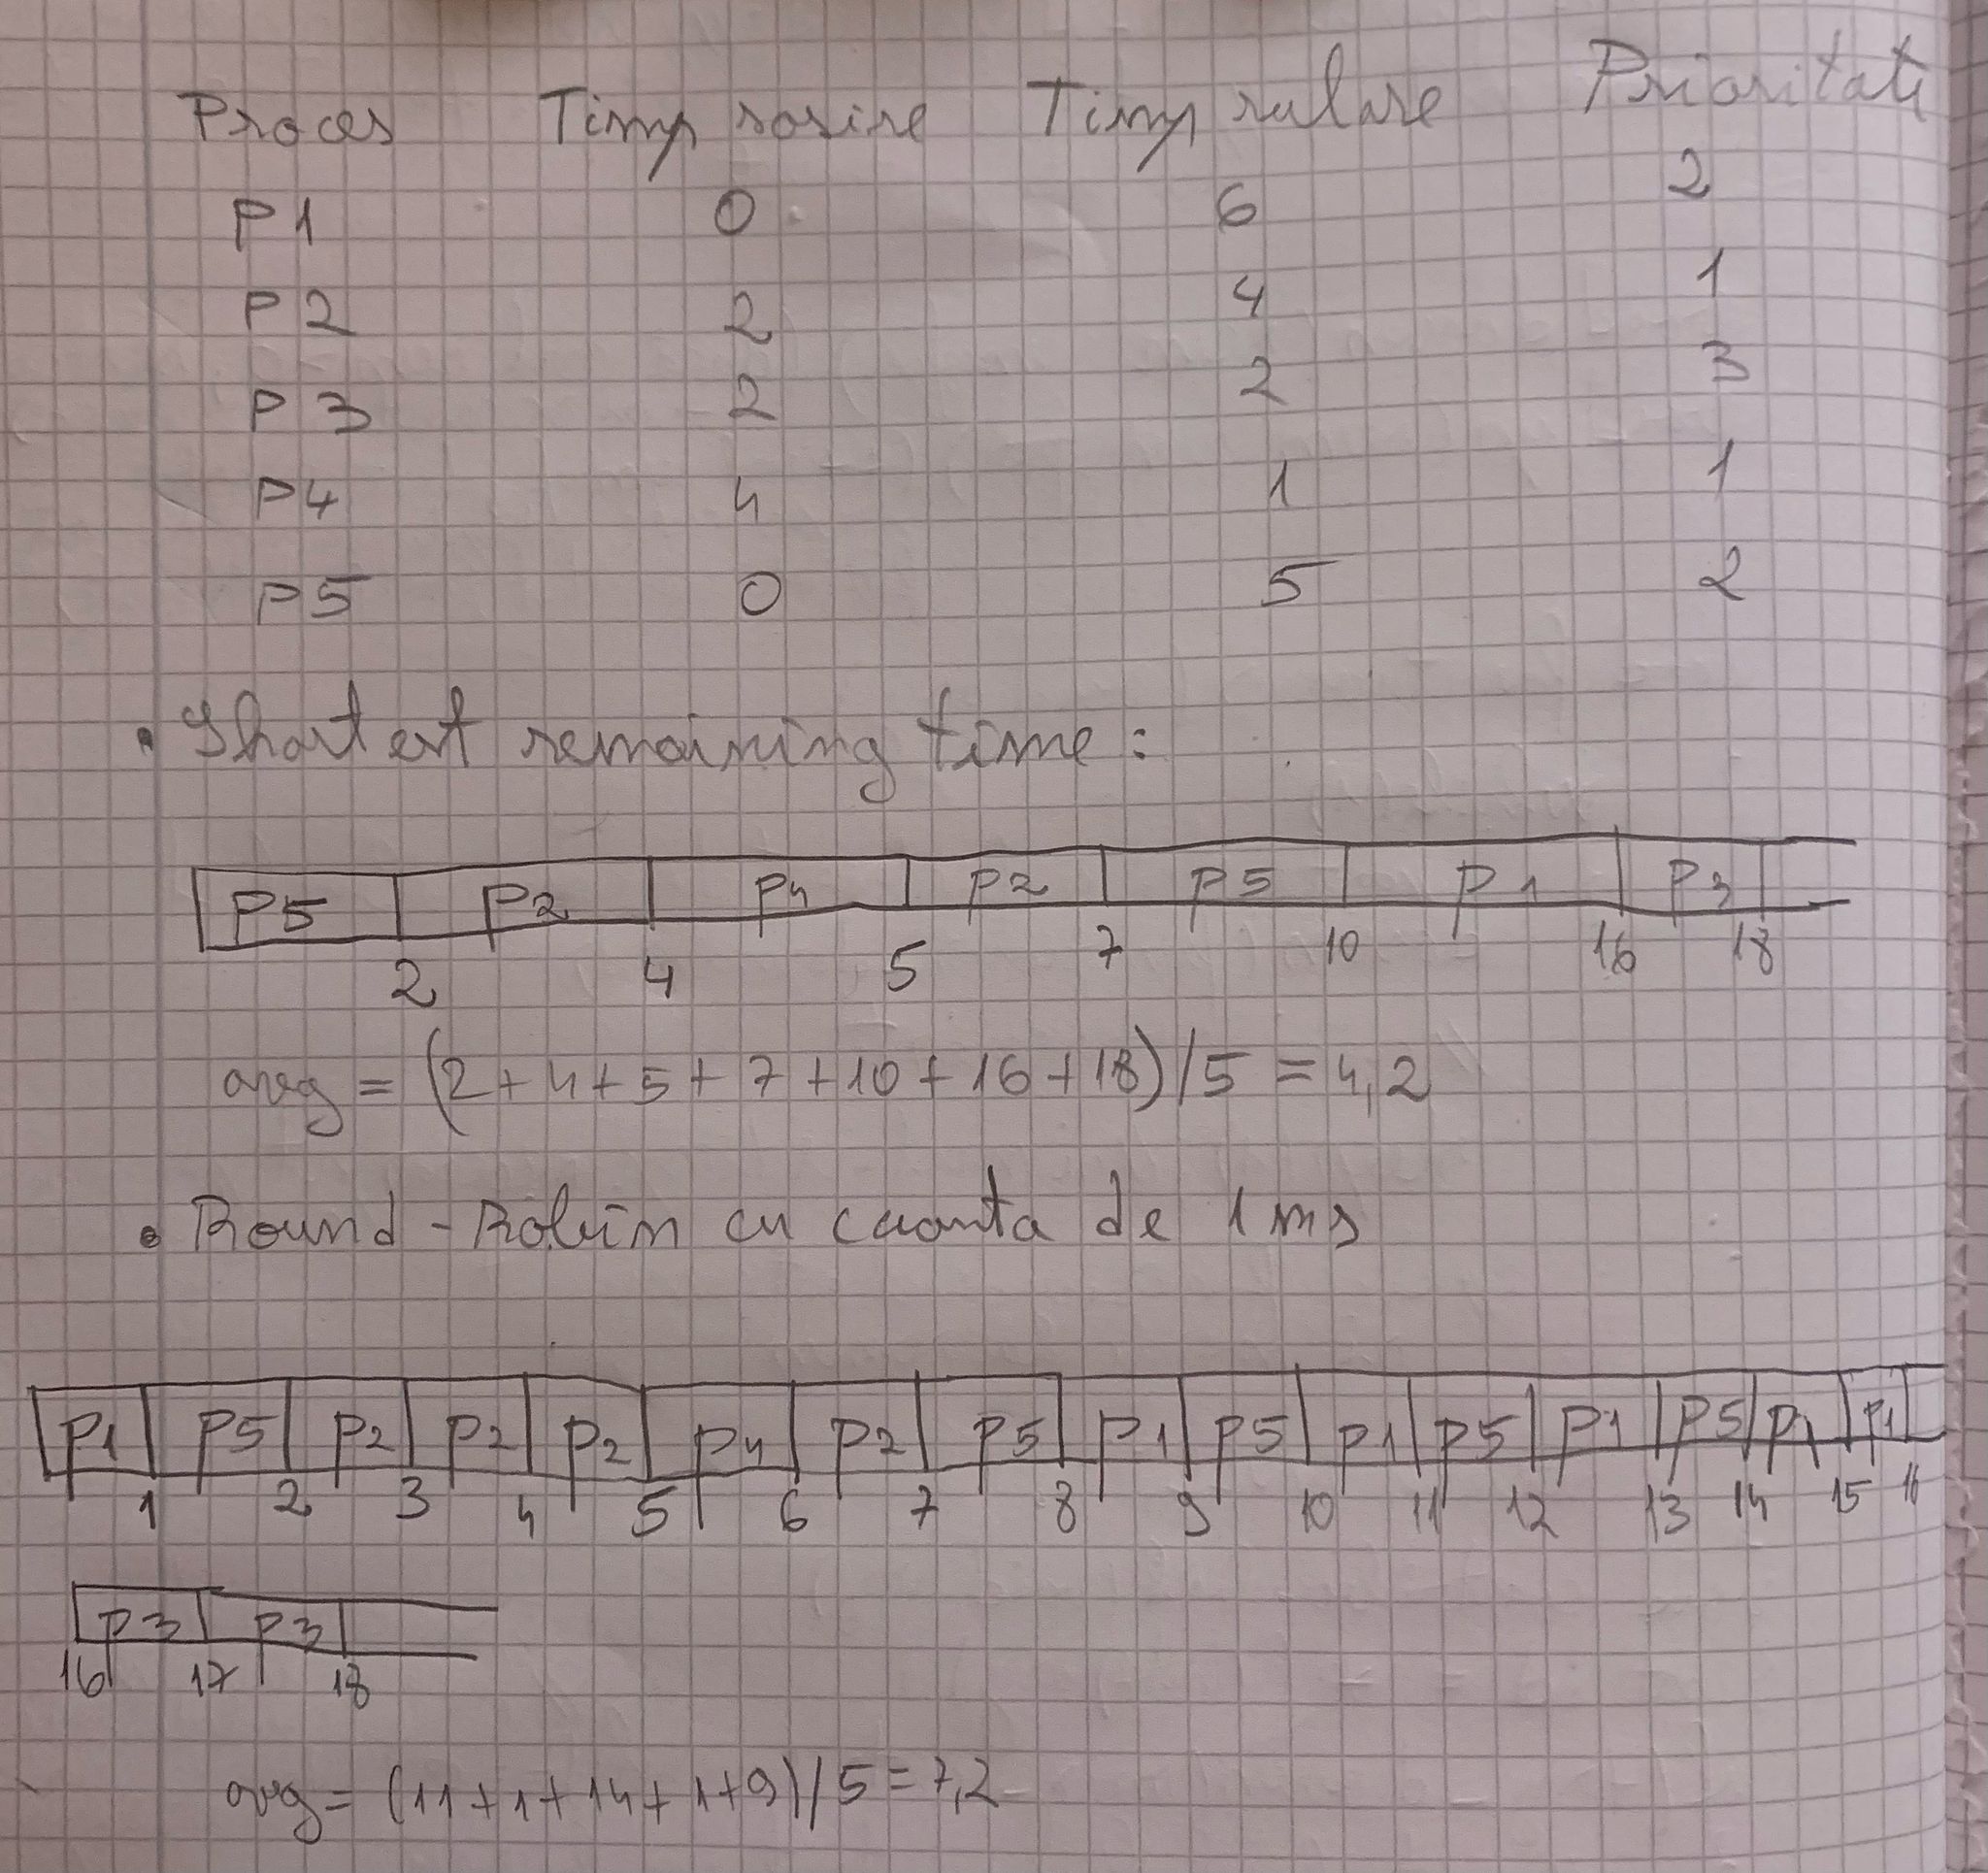 Proces Timp sosire Timp rulare Prioritate
P1 0 6 2
P2 2 4 1
P3 2 2 3
P4 4 1 1
P5 0 5 2
• Shortest remaining time:
P5 P2 P4 P2 P5 P1 P3
2 4 5 7 10 16 18
avg = (2+4+5+7+10+16+18)/5 = 4,2
• Round-Robin cu cuanta de 1 ms
P1 P5 P2 P2 P2 P4 P2 P5 P1 P5 P1 P5 P1 P5 P1 P1
1 2 3 4 5 6 7 8 9 10 11 12 13 14 15 16
P3 P3
16 17 18
avg = (11+1+14+1+9)/5 = 7,2